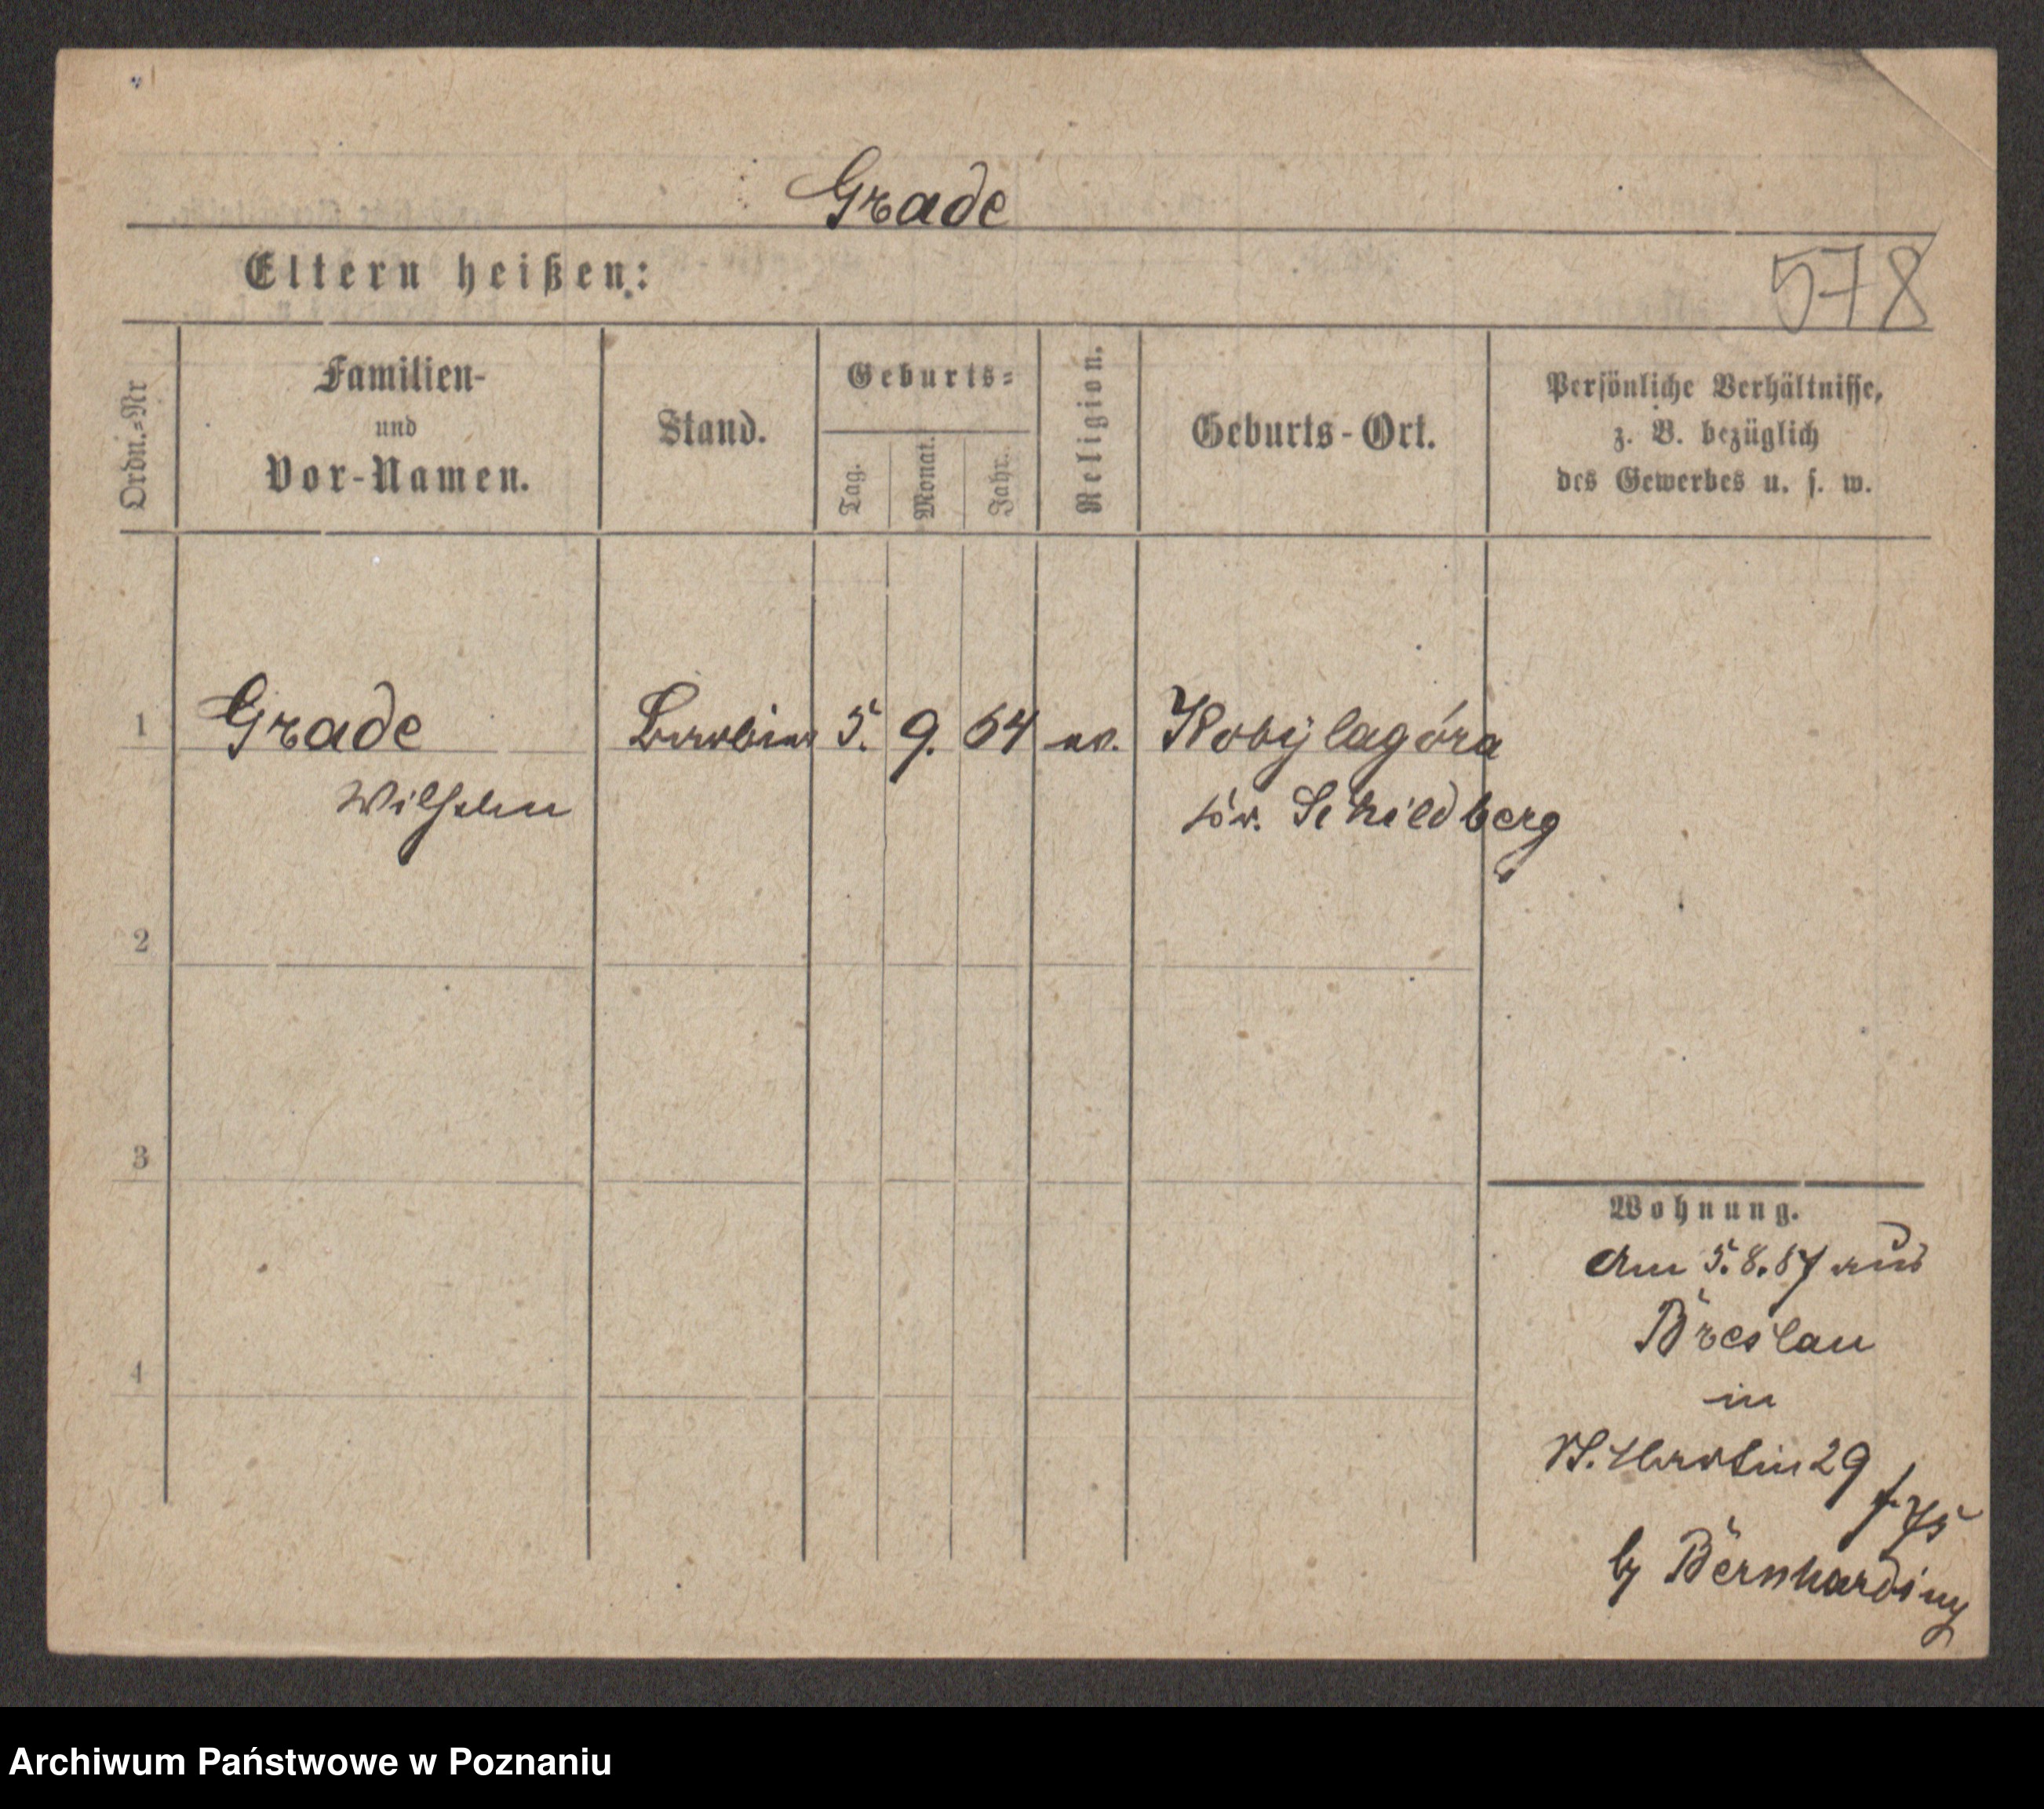 Grade
Eltern heißen:
578
Ordn.-Nr
Familien-
und
Vor-Namen.
Stand.
Geburts-
Tag.
Monat.
Jahr.
Religion.
Geburts-Ort.
Persönliche Verhältnisse,
z. B. bezüglich
des Gewerbes u. s. w.
1 Grade Barbier 5. 9. 64 ev. Kobylagóra
Wilhelm
Kr. Schildberg
2
3
4
Wohnung.
Am 5.8.87 aus
Breslau
in
St. Martin 29
f. 75
by Bernhardiny
Archiwum Państwowe w Poznaniu